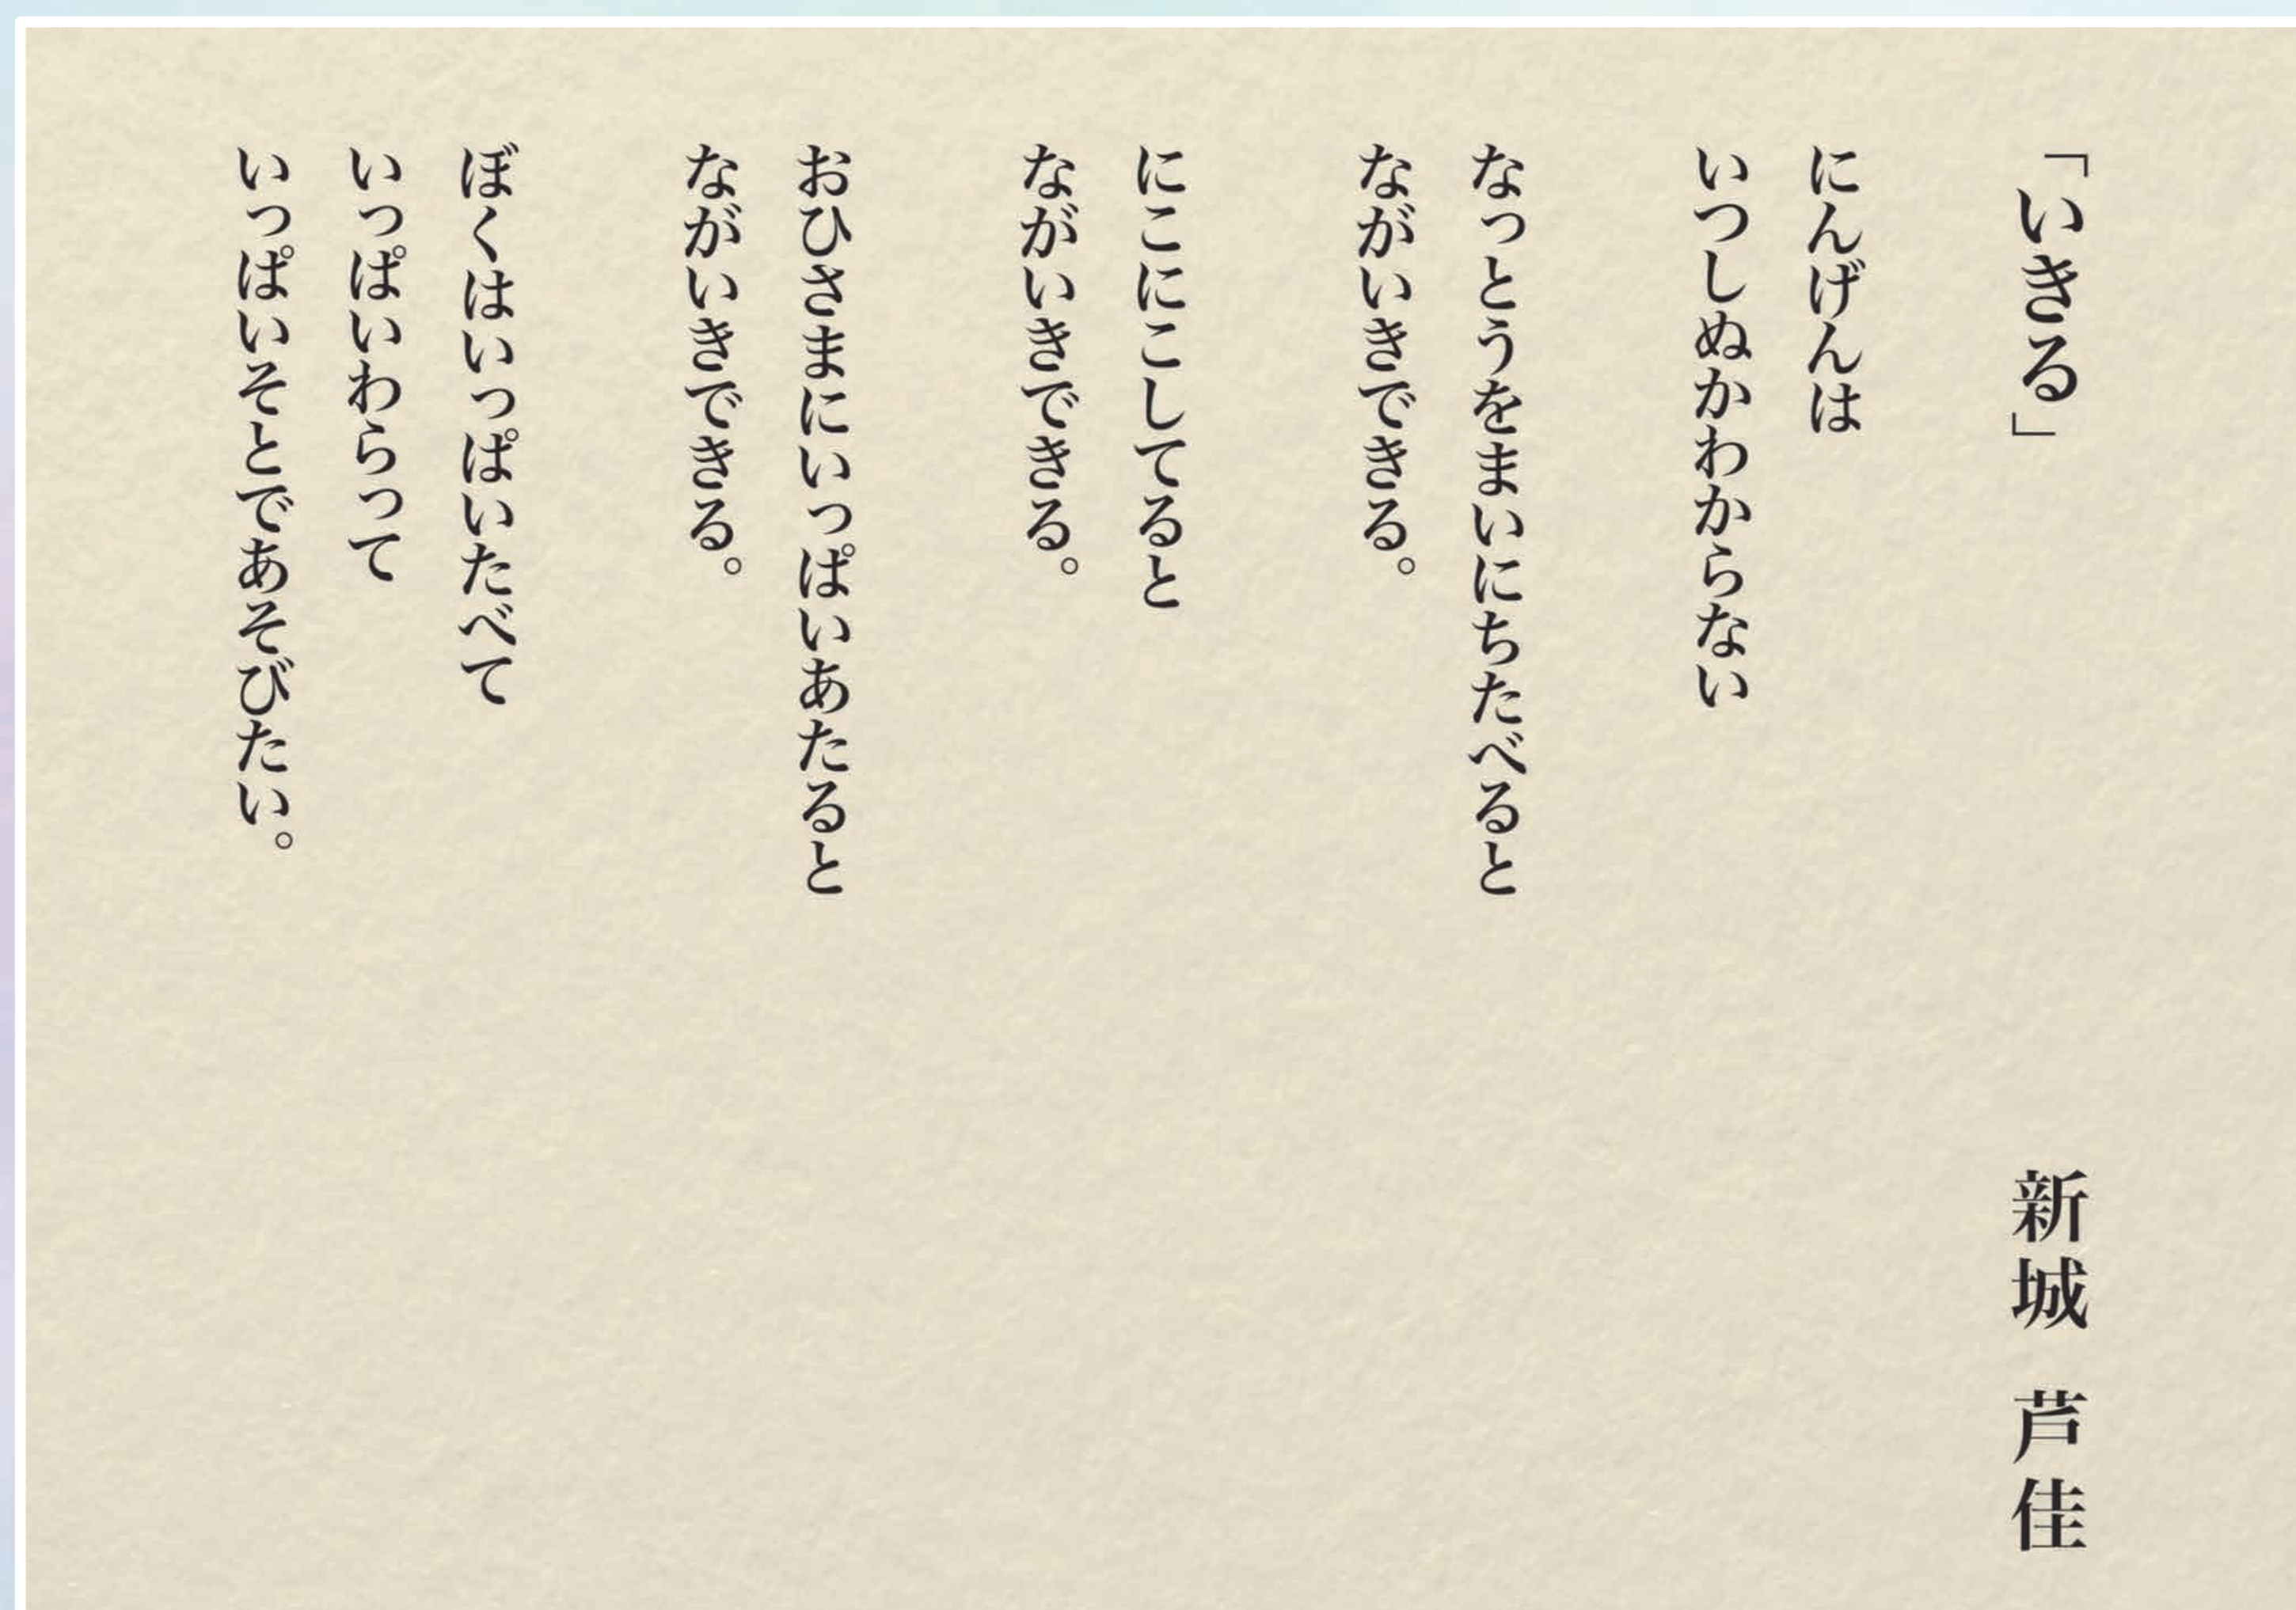 「いきる」
新城 芦佳
にんげんは
いつしぬかわからない
なっとうをまいにちたべると
ながいきできる。
にこにこしてると
ながいきできる。
おひさまにいっぱいあたると
ながいきできる。
ぼくはいっぱいたべて
いっぱいわらって
いっぱいそとであそびたい。